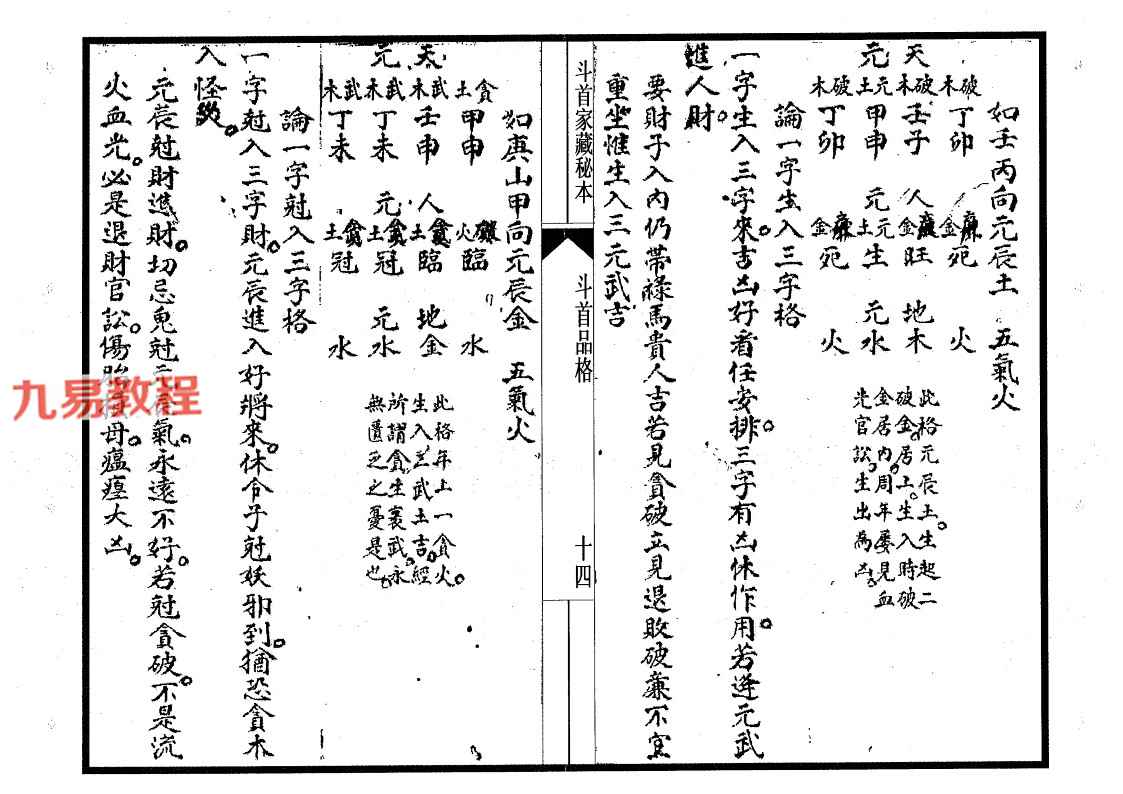 如壬丙向元辰土　五氣火
破木　丁卯　廉金　死　火
天　破木　壬子　人　廉金　旺　地　木
元　元土　甲申　元　元土　生　元　水
破木　丁卯　廉金　死　火
此格元辰土。生起二
破金。居上。生入時破
金居內。周年屡見血
光官訟。生出為凶。
論一字生入三字格
一字生入三字來。吉凶好看任安排。三字有凶休作用。若逢元武
進人財。
要財子入內仍帶祿馬貴人吉若見貪破立見退敗破廉不宜
重坐惟生入三元武吉
斗首家藏秘本
斗首品格
十四
如庚山甲向元辰金　五氣火
貪土　甲申　火　臨　水
天　武木　壬申　人　貪土　臨　地　金
元　武木　丁未　元　貪土　冠　元　水
武木　丁未　貪土　冠　水
此格年上一貪火。
生入三武土吉。經
所謂貪生裹武。永
無匱乏之憂是也。
論一字尅入三字格
一字尅入三字財。元辰進入好將來。休令子尅妖邪到。猶恐貪木
入怪。
元辰尅財進財。切忌鬼尅元氣。永遠不好。若尅貪破。不是流
火血光。必是退財官訟。傷母。瘟瘟大凶。
九易教程